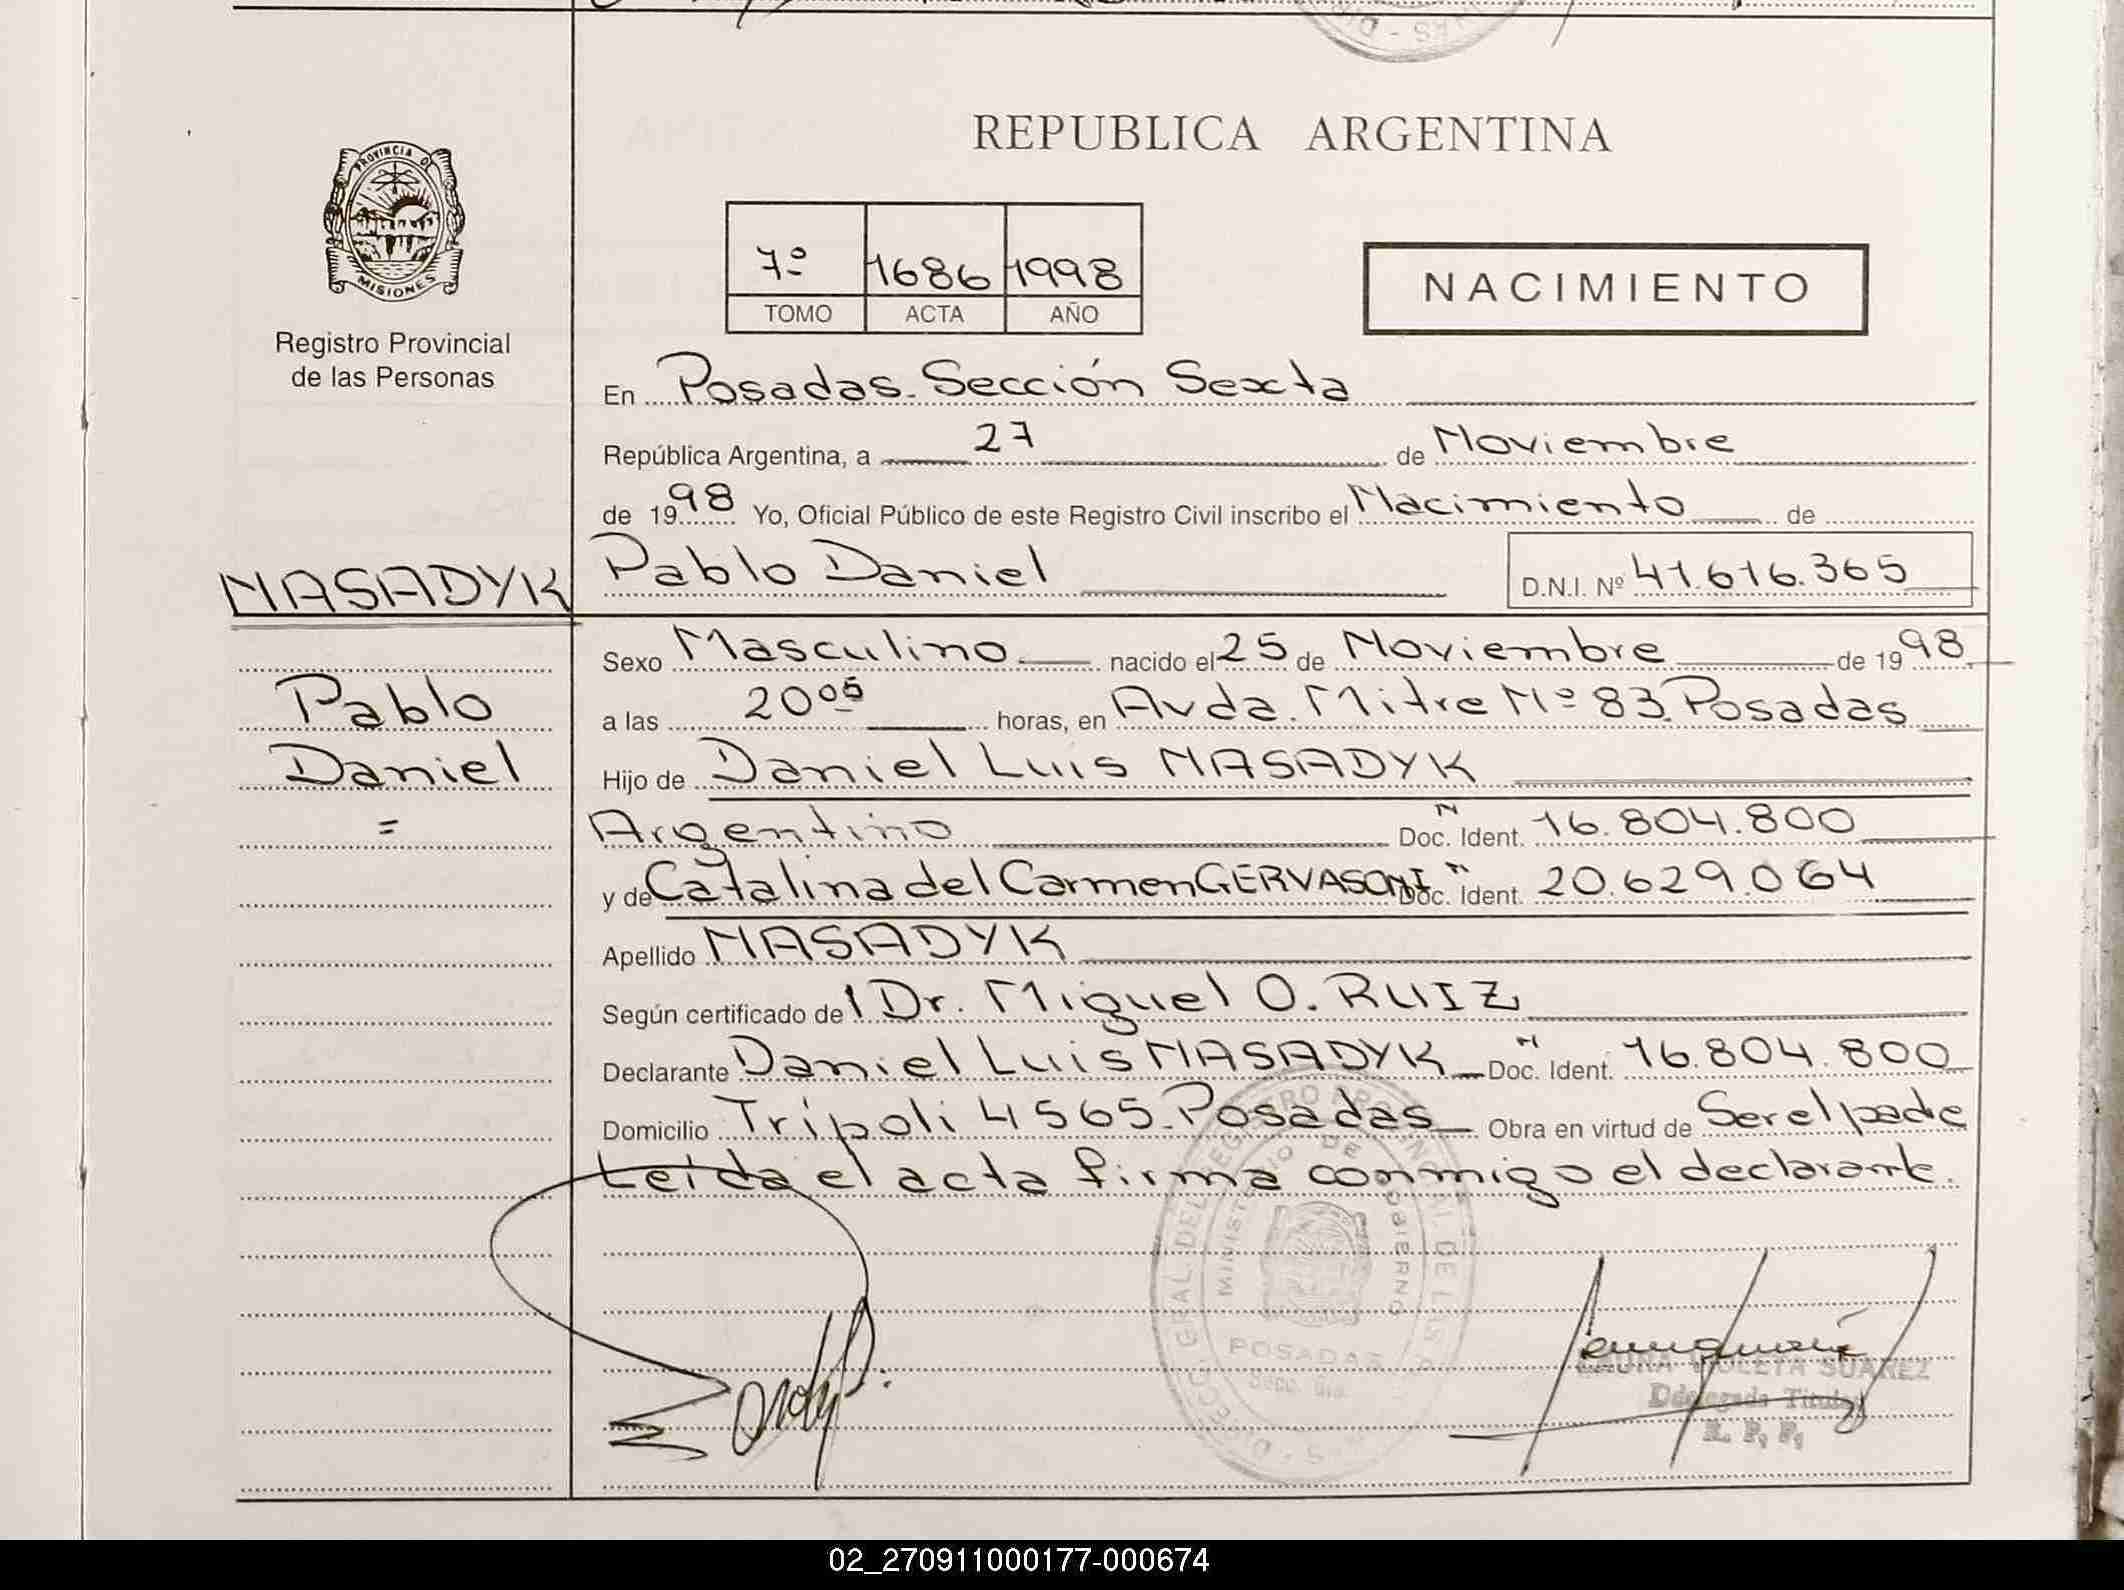 REPUBLICA ARGENTINA
PROVINCIA DE
MISIONES
Registro Provincial
de las Personas
7º 1686 1998
TOMO ACTA AÑO
NACIMIENTO
En Posadas. Sección Sexta
República Argentina, a 27 de Noviembre
de 1998 Yo, Oficial Público de este Registro Civil inscribo el Nacimiento de
NASADYK Pablo Daniel D.N.I. Nº 41.616.365
Pablo
Daniel
=
Sexo Masculino nacido el 25 de Noviembre de 1998
a las 20 05 horas, en Avda. Mitre Nº 83. Posadas
Hijo de Daniel Luis NASADYK
Argentino Doc. Ident. N 16.804.800
y de Catalina del Carmen GERVASONI Doc. Ident. N 20.629.064
Apellido NASADYK
Según certificado del Dr. Miguel O. RUIZ
Declarante Daniel Luis NASADYK Doc. Ident. N 16.804.800
Domicilio Trípoli 4565. Posadas Obra en virtud de Ser el padre
Leída el acta firma conmigo el declarante.
MINISTERIO DE GOBIERNO
POSADAS
Secc. 6ta.
LAURA VIOLETA SUAREZ
Delegada Titular
R. P. P.
02_270911000177-000674